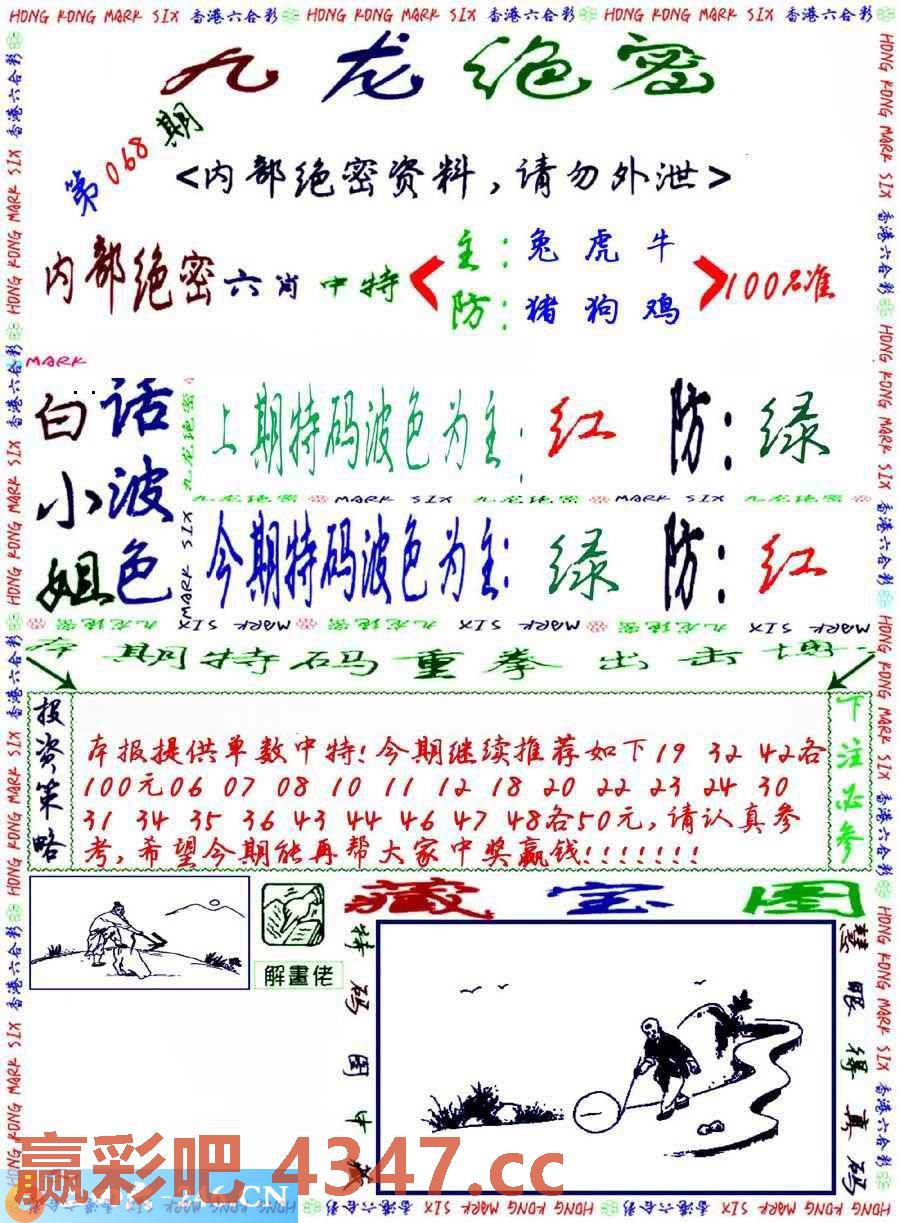 HONG KONG MARK SIX 香港六合彩 HONG KONG MARK SIX 香港六合彩 HONG KONG MARK SIX 香港六合彩
九龙绝密
第068期
<内部绝密资料,请勿外泄>
内部绝密六肖中特
主:兔虎牛
防:猪狗鸡
100%准
MARK
白话
小波
姐色
上期特码波色为主:红 防:绿
九龙绝密 MARK SIX 九龙绝密 MARK SIX 九龙绝密
今期特码波色为主:绿 防:红
九龙绝密
MARK SIX
本期特码重拳出击
投资策略
本报提供单数中特!今期继续推荐如下19 32 42各
100元06 07 08 10 11 12 18 20 22 23 24 30
31 34 35 36 43 44 46 47 48各50元,请认真参
考,希望今期能再帮大家中奖赢钱!!!!!!!
下注必参
藏宝图
解畫佬
特码图中
慧眼得真码
赢彩吧 4347.cc
.CN